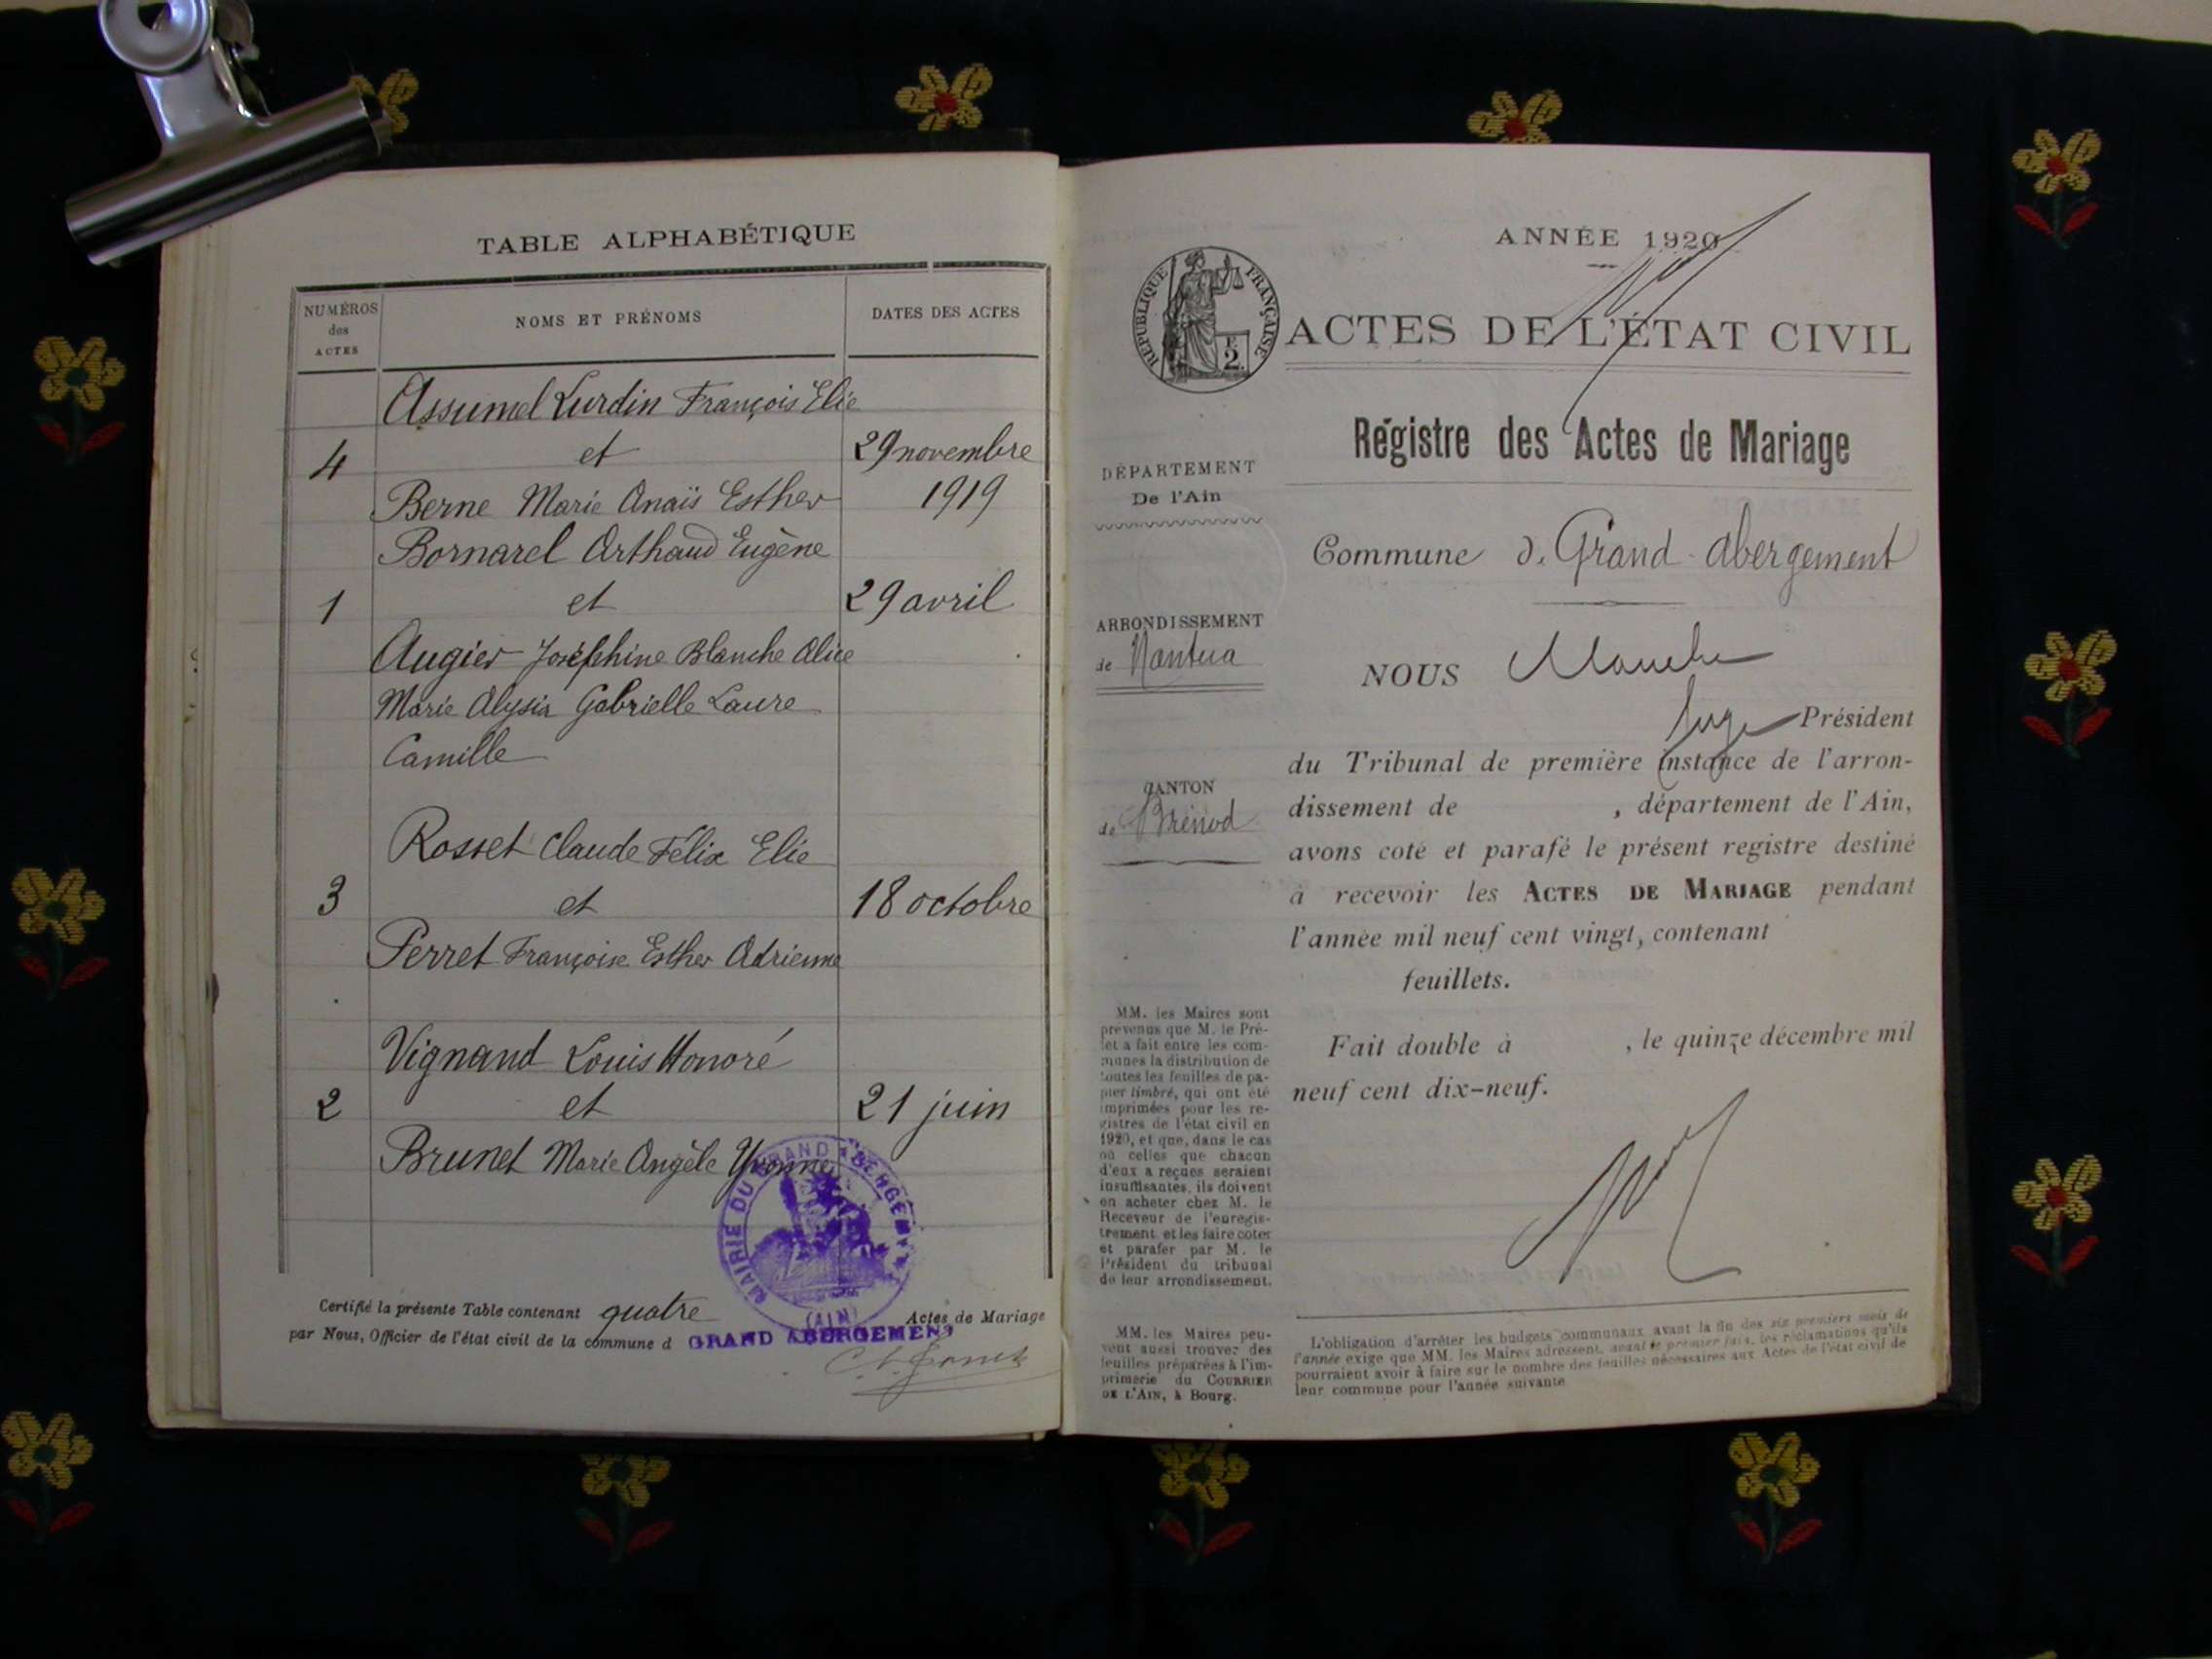 TABLE ALPHABÉTIQUE
NUMÉROS des ACTES
NOMS ET PRÉNOMS
DATES DES ACTES
Assumel Lurdin François Elie
4 et 29 novembre
Berne Marie Anaïs Esther 1919
Bornarel Arthaud Eugène
1 et 29 avril
Augier Joséphine Blanche Alice
Marie Alysia Gabrielle Laure
Camille
Rosset Claude Félix Elie
3 et 18 octobre
Perret Françoise Esther Adrienne
Vignand Louis Honoré
2 et 21 juin
Brunet Marie Angèle Yvonne
MAIRIE DU GRAND ABERGEMENT
(AIN)
Certifié la présente Table contenant quatre Actes de Mariage
par Nous, Officier de l'état civil de la commune d GRAND ABERGEMENT
ANNÉE 1920
RÉPUBLIQUE FRANÇAISE
F. 2.
ACTES DE L'ÉTAT CIVIL
Régistre des Actes de Mariage
DÉPARTEMENT
De l'Ain
Commune d. Grand-Abergement
ARRONDISSEMENT
de Nantua
CANTON
de Brénod
NOUS
Juge Président
du Tribunal de première instance de l'arron-
dissement de , département de l'Ain,
avons coté et parafé le présent registre destiné
à recevoir les ACTES DE MARIAGE pendant
l'année mil neuf cent vingt, contenant
feuillets.
Fait double à , le quinze décembre mil
neuf cent dix-neuf.
MM. les Maires sont
prévenus que M. le Pré-
fet a fait entre les com-
munes la distribution de
toutes les feuilles de pa-
pier timbré, qui ont été
imprimées pour les re-
gistres de l'état civil en
1920, et que, dans le cas
où celles que chacun
d'eux a reçues seraient
insuffisantes, ils doivent
en acheter chez M. le
Receveur de l'enregis-
trement et les faire coter
et parafer par M. le
Président du tribunal
de leur arrondissement.
MM. les Maires peu-
vent aussi trouver des
feuilles préparées à l'im-
primerie du COURRIER
DE L'AIN, à Bourg.
L'obligation d'arrêter les budgets communaux avant la fin des six premiers mois de
l'année exige que MM. les Maires adressent, avant le premier juin, les réclamations qu'ils
pourraient avoir à faire sur le nombre des feuilles nécessaires aux Actes de l'état civil de
leur commune pour l'année suivante